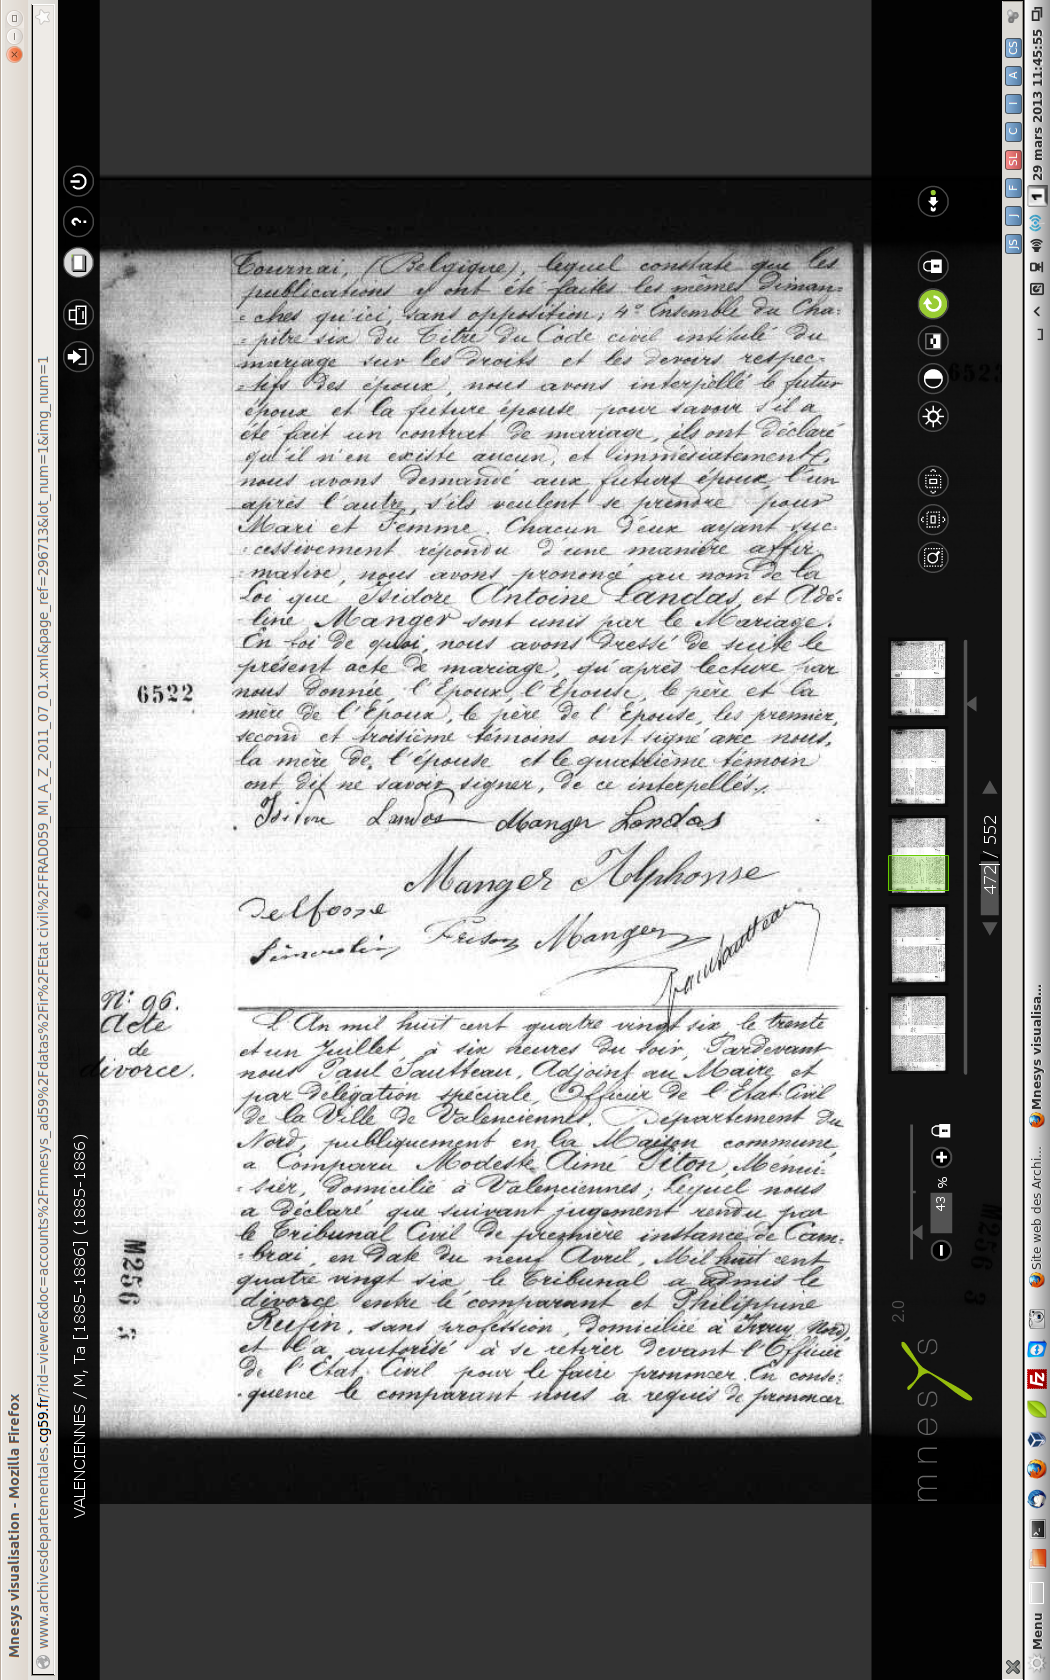 Mnesys visualisation - Mozilla Firefox
www.archivesdepartementales.cg59.fr/?id=viewer&doc=accounts%2Fmnesys_ad59%2Fdatas%2Fir%2FEtat civil%2FFRAD059_MI_A_Z_2011_07_01.xml&page_ref=296713&lot_num=1&img_num=1
VALENCIENNES / M, Ta [1885-1886] (1885-1886)
?
Tournai, (Belgique), lequel constate que les
publications y ont été faites les mêmes Diman=
=ches qu'ici, sans opposition; 4° Ensemble du Cha=
=pitre six du Titre du Code civil intitulé du
mariage sur les droits et les devoirs respec=
=tifs des époux, nous avons interpellé le futur
époux et la future épouse pour savoir s'il a
été fait un contrat de mariage, ils ont déclaré
qu'il n'en existe aucun, et immédiatement,
nous avons demandé aux futurs époux, l'un
après l'autre, s'ils veulent se prendre pour
Mari et Femme. Chacun d'eux ayant suc=
=cessivement répondu d'une manière affir
=mative, nous avons prononcé au nom de la
Loi que Isidore Antoine Landas et Adé=
=line Manger sont unis par le Mariage.
En foi de quoi, nous avons dressé de suite le
présent acte de mariage, qu'après lecture par
6522
nous donnée, l'Epoux, l'Epouse, le père et la
mère de l'Epoux, le père de l'Epouse, les premier,
second et troisième témoins ont signé avec nous,
la mère de l'épouse et le quatrième témoin
ont dit ne savoir signer, de ce interpellés.
Isidore Landas Manger Landas
Manger Alphonse
Delfosse
Frison Manger
Paul Sautteau
N: 96.
Acte
de
divorce.
L'An mil huit cent quatre vingt six, le trente
et un Juillet, à six heures du soir, Pardevant
nous Paul Sautteau, Adjoint au Maire et
par délégation spéciale, Officier de l'Etat-Civil
de la Ville de Valenciennes, Département du
Nord, publiquement en la Maison commune
a Comparu Modeste Aimé Piton, Ménui=
=sier, domicilié à Valenciennes; Lequel nous
a déclaré que suivant jugement rendu par
le Tribunal Civil de première instance de Cam=
=brai, en date du neuf Avril, Mil huit cent
quatre vingt six le Tribunal a admis le
divorce entre le comparant et Philippine
Rufin, sans profession, domiciliée à Iwuy, Nord,
et l'a autorisé à se retirer devant l'Officier
de l'Etat Civil pour le faire prononcer. En consé=
=quence le comparant nous a requis de prononcer
M256 3
6523
M256 3
mnesys 2.0
43 %
472 / 552
Menu
Site web des Archi...
Mnesys visualisa...
JS J F SL C I A CS
1 29 mars 2013 11:45:55